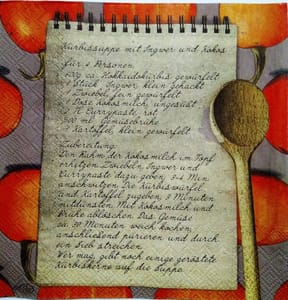 Kürbissuppe mit Ingwer und Kokos
für 4 Personen
kg ca. Hokkaidokürbis gewürfelt
1 Stück Ingwer klein gehackt
1 Zwiebel, fein gewürfelt
1 Dose Kokosmilch, ungesüßt
TL Currypaste, rot
500 ml Gemüsebrühe
1 Kartoffel, klein gewürfelt
Zubereitung:
Den Rahm der Kokosmilch im Topf
erhitzen Zwiebeln, Ingwer und
Currypaste dazu geben, 3-4 Min
anschwitzen Die Kürbiswürfel
und Kartoffel zugeben, 3 Minuten
mitdünsten. Mit Kokosmilch und
Brühe ablöschen. Das Gemüse
ca. 20 Minuten weich kochen,
anschließend pürieren und durch
ein Sieb streichen.
Wer mag, gibt noch einige geröstete
Kürbiskerne auf die Suppe.